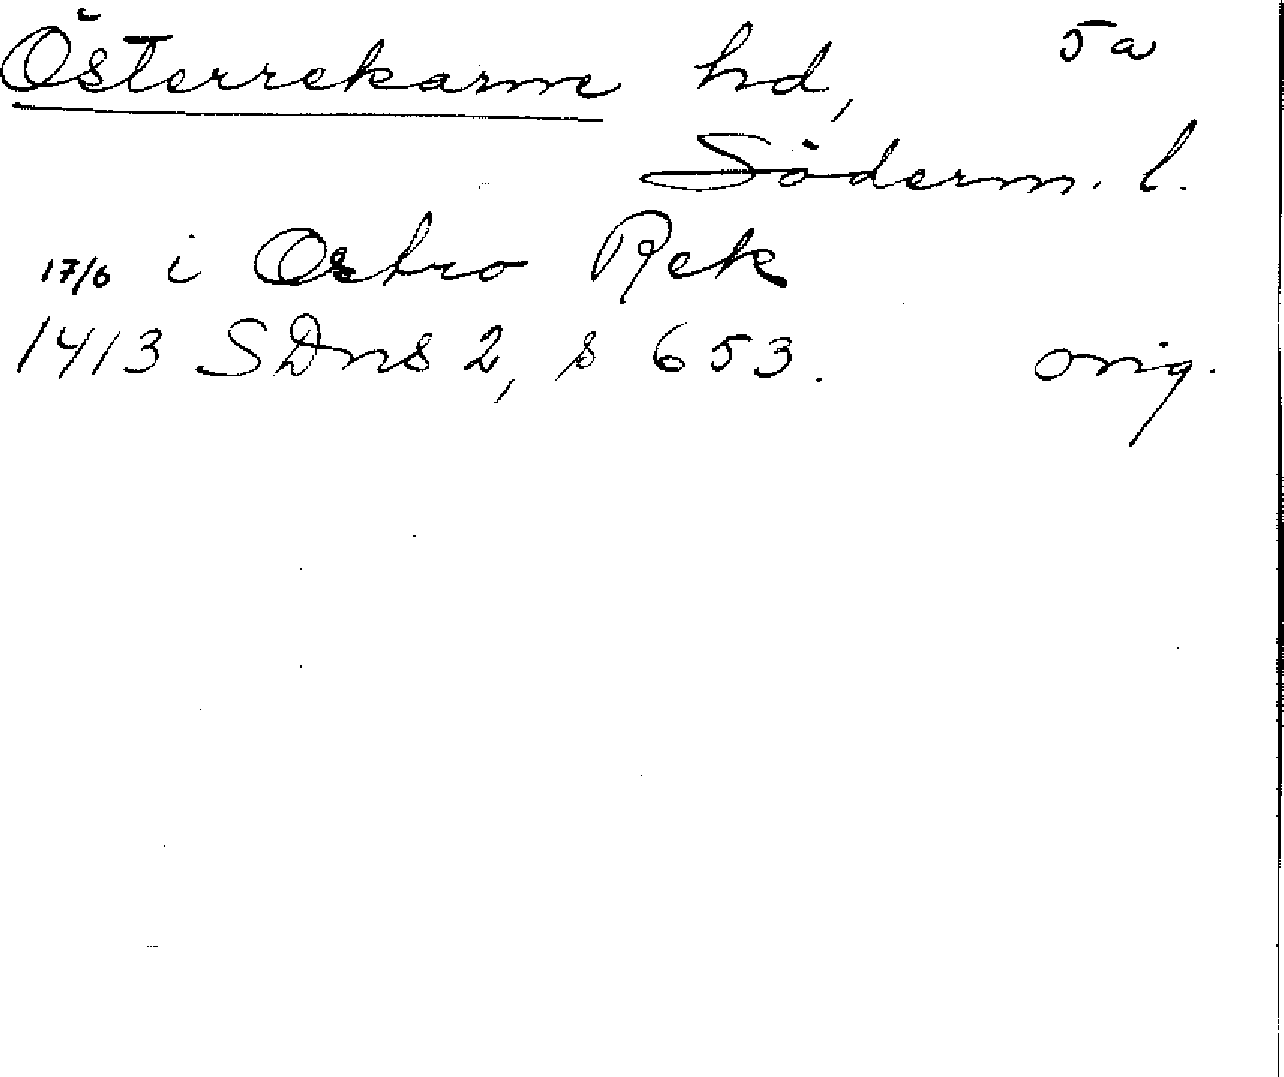 Österrekarne hd, 5a
Söderm. l.
17/6 i Ostro Rek
1413 SDns 2, s 653. orig.